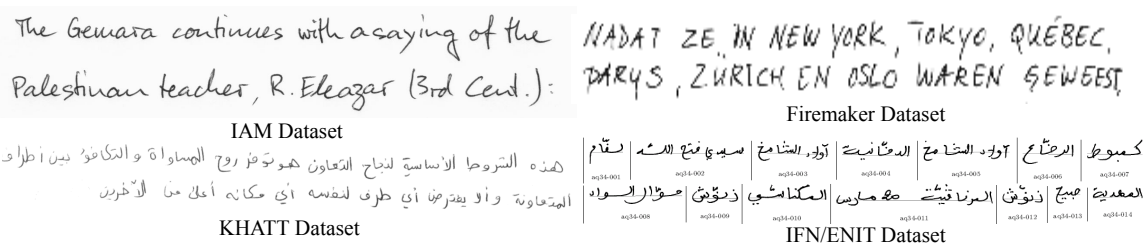 The Gemara continues with a saying of the
Palestinian teacher, R. Eleazar (3rd Cent.):
IAM Dataset
NADAT ZE IN NEW YORK, TOKYO, QUÉBEC,
PARYS, ZÜRICH EN OSLO WAREN GEWEEST,
Firemaker Dataset
هذه الشروط الأساسية لنجاح التعاون هو توفر روح المساواة والتكافؤ بين أطراف
المتعاونة وألا يفترض أي طرف لنفسه أي مكانه أعلى من الآخرين
KHATT Dataset
كمبوط الرضاع أولاد الشامخ أولاد الشامخ سيدي فتح الله
aq34-001 aq34-002 aq34-003 aq34-004 aq34-005 aq34-006 aq34-007
المعدية صبيح زنوش المرناقية 20 مارس المكناسي زنوش السواد
aq34-008 aq34-009 aq34-010 aq34-011 aq34-012 aq34-013 aq34-014
IFN/ENIT Dataset